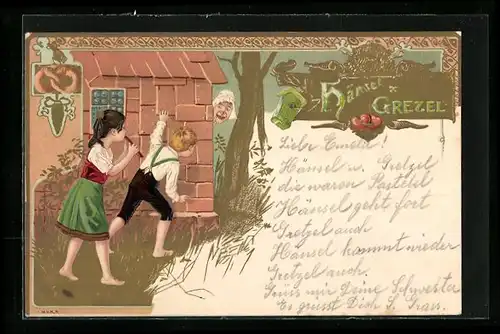 Hänsel &
GRETEL
Liebe Emma!
Hänsel u. Gretzel
die waren
Hänsel geht fort
Gretzel auch
Hänsel kommt wieder
Gretzel auch.
Grüss mir Deine Schwester
Es grüsst Dich S.